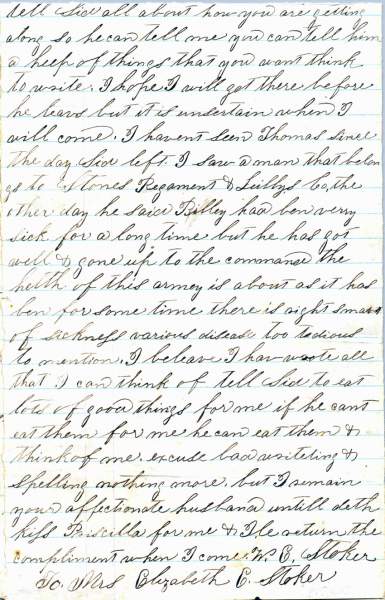 tell Sid all about how you are getting
along so he can tell me you can tell him
a heep of things that you want think
to write. I hope I will got there before
he leavs but it is unsertain when I
will come. I havent seen Thomas since
the day Sid left. I saw a man that belon
gs to Stones Regament & Lillys Co, the
other day he said Billey had ben verry
sick for a long time but he has got
well & gone up to the command the
helth of this armey is about as it has
ben for some time there is right smart
of sickness various disease too tedious
to mention. I beleave I hav wrote all
that I can think of tell Sid to eat
lots of good things for me if he cant
eat them for me he can eat them &
think of me. excuse bad writeting &
spelling nothing more. but I remain
your affectionate husband untill deth
kiss Priscilla for me & Ile return the
compliment when I come. W. E. Stoker
To Mrs Elizabeth E. Stoker